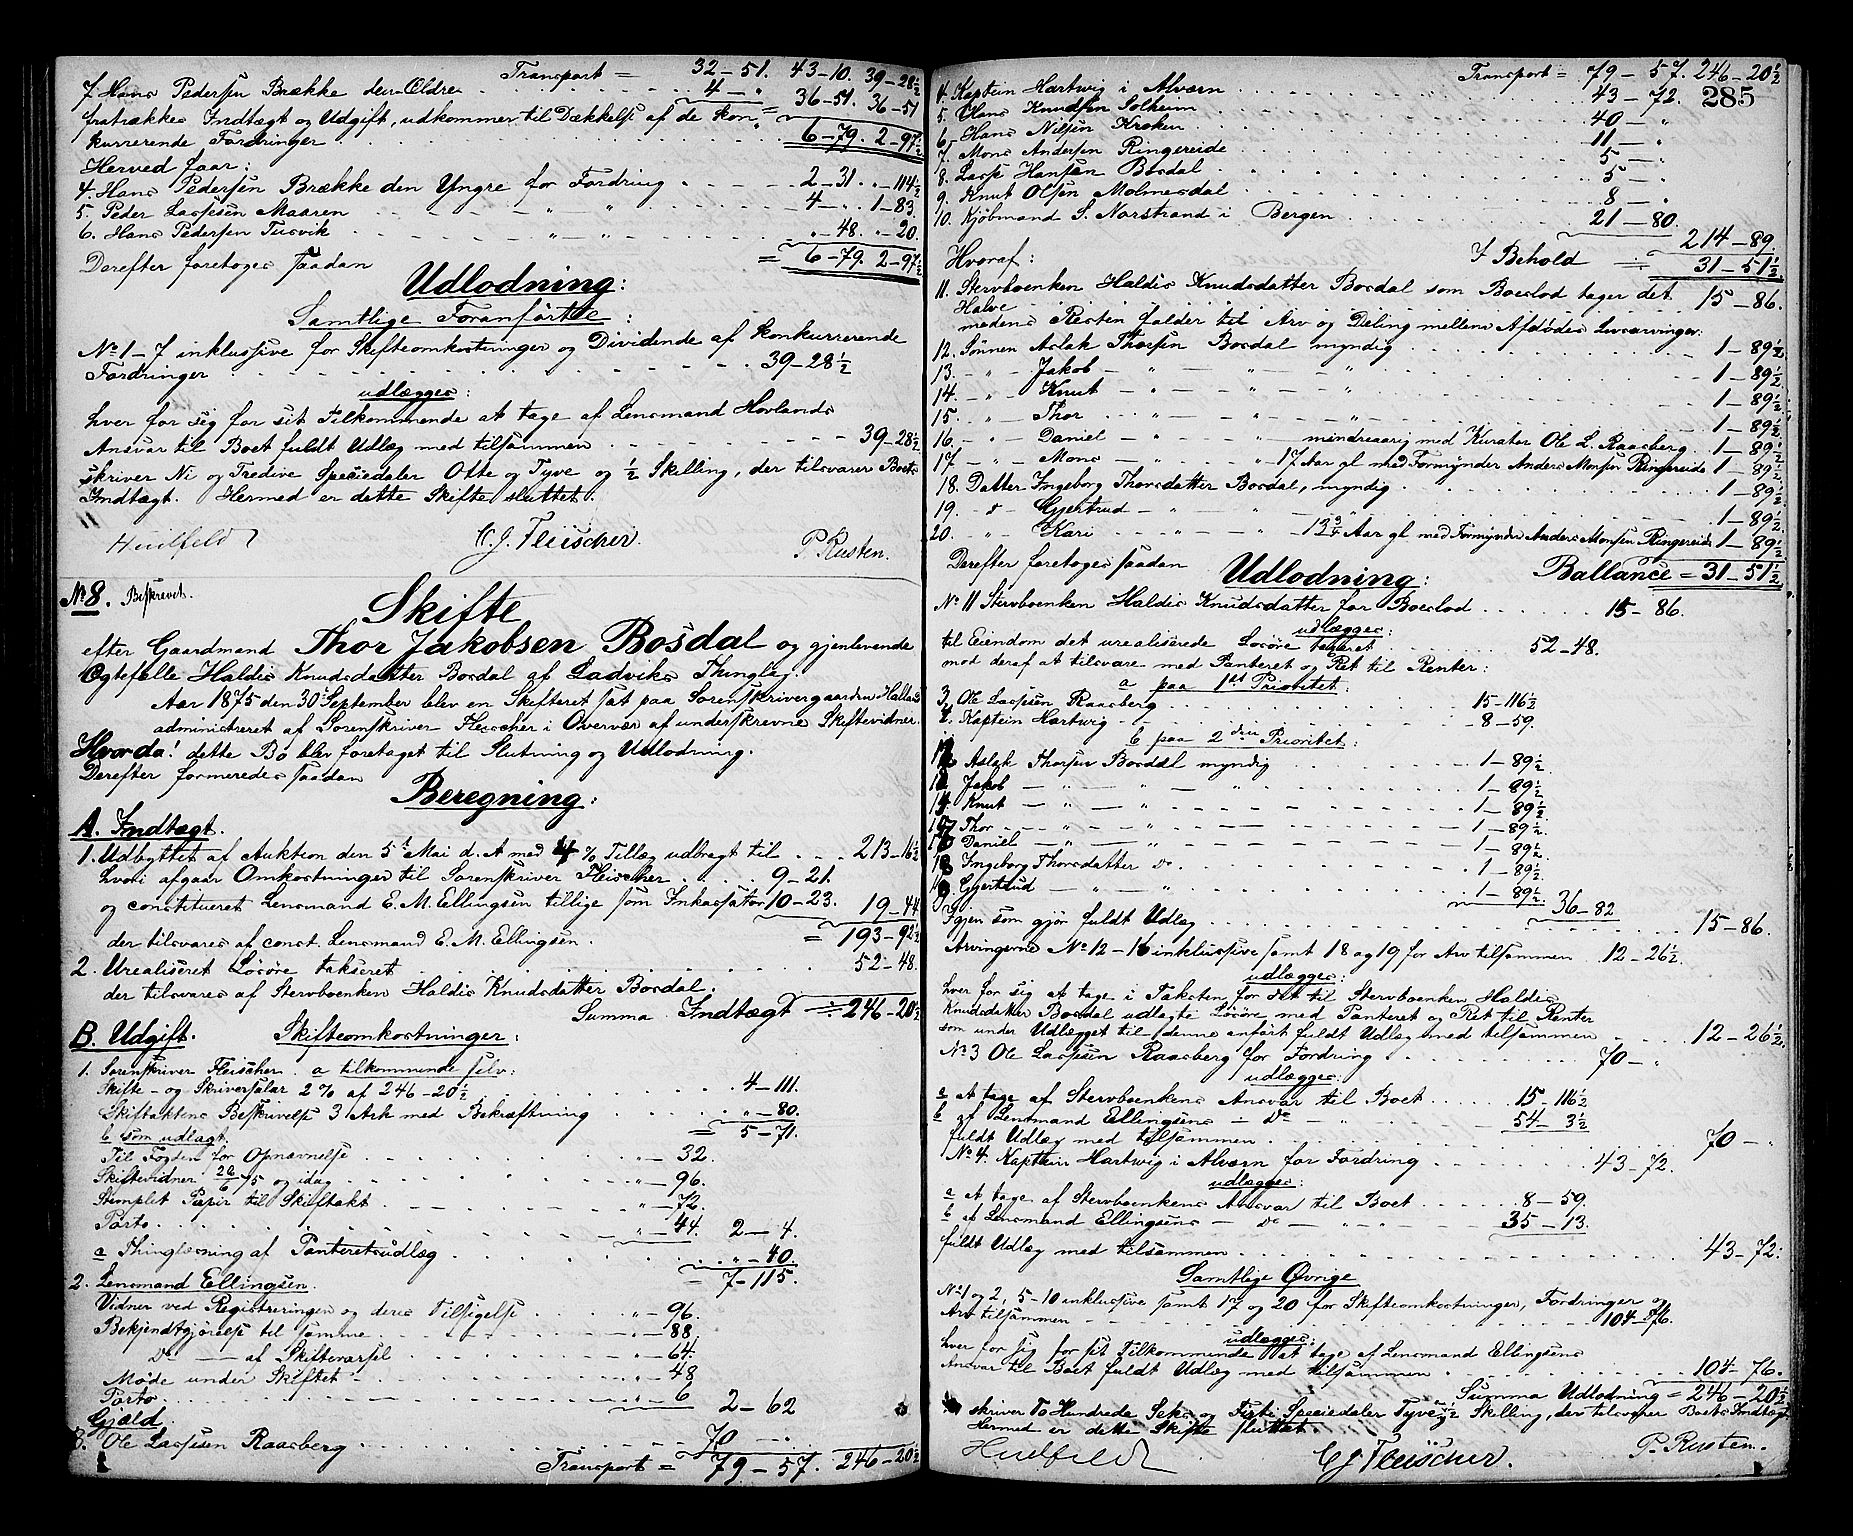 Transport = 32–51. 43–10. 39–28½
7. Hans Pedersen Brække den Ældre . . . 4 – „
36–51. 36–51
fratrækkes Indtægt og Udgift, udkommer til Dækkelse af de kon-
kurrerende Fordringer . . . 6–79. 2–97½
Herved faar:
4. Hans Pedersen Brække den Yngre for Fordring . . . 2–31. „–114½
5. Peder Lassesen Maaren — „ — „ 4 – „ 1–83.
6. Hans Pedersen Tusvik — „ — „ „–48. „–20.
Derefter foretoges saadan = 6–79. 2–97½
Udlodning:
Samtlige Foranførte:
No 1–7 inklusive for Skifteomkostninger og Dividende af konkurrerende
Fordringer . . . 39–28½
udlægges:
hver for sig for sit Tilkommende at tage af Lensmand Hovlands
Ansvar til Boet fuldt Udlæg med tilsammen . . . 39–28½
skriver Ni og Tredive Speciedaler Otte og Tyve og ½ Skilling, der tilsvarer Boets
Indtægt. Hermed er dette Skifte sluttet.
Huilfeldt C. J. Fleischer. P. Rusten.
No 8. Beskrevet.
Skifte
efter Gaardmand Thor Jakobsen Bosdal og gjenlevende
Ægtefelle Haldis Knudsdatter Bosdal af Ladviks Thinglag.
Aar 1875 den 30' September blev en Skifteret sat paa Sorenskrivergaarden
administreret af Sorenskriver Fleischer i Overvær af underskrevne Skiftevidner.
Hvorda! dette Bo blev foretaget til Slutning og Udlodning.
Derefter formeredes saadan
Beregning:
A. Indtægt.
1. Udbyttet af Auktion den 5t Mai d. A. med 4 % Tillæg udbragt til . . . 213–16½
hvori afgaar Omkostninger til Sorenskriver Fleischer . . . 9–21.
og constitueret Lensmand E. M. Ellingsen tillige som Inkassator 10–23. 19–44
der tilsvares af const. Lensmand E. M. Ellingsen. = 193–92½
2. Urealiseret Løsøre takseret . . . 52–48.
der tilsvares af Stervboenken Haldis Knudsdatter Bosdal.
Summa Indtægt = 246–20½
B. Udgift. Skifteomkostninger:
1. Sorenskriver Fleischer. a tilkommende selv:
Skifte- og Skriversalær 2 % af 246–20½ . . . 4–111.
Skifteaktens Beskrivelse 3 Ark med Bekræftning . . . „–80.
b som udlagt. = 5–71.
Til Fogden for Opnævnelse . . . „–32.
Skiftevidner 26/6 75 og idag . . . „–96.
Stemplet Papir til Skifteakt . . . „–72.
Porto . . . „–44. 2–4.
a Thinglæsning af Panteretsudlæg . . . „–40
2. Lensmand Ellingsen. = 7–115.
Vidner ved Registreringen og deres Tilsigelse . . . „–96.
Bekjendtgjørelse til samme . . . „–88.
Do — af Skiftevæsel . . . „–64.
Møde under Skiftet . . . „–48
Porto . . . „–6 2–62
Gjæld.
3. Ole Lassesen Raasberg . . . 70 – „
Transport = 79–57. 246–20½
Transport = 79–57. 246–20½
285
4. Kaptein Hartwig i Alværn . . . 43–72.
5. Hans Knudsen Solheim . . . 40 – „
6. Hans Nilsen Kroken . . . 11 – „
7. Mons Andersen Ringereide . . . 5 – „
8. Lasse Hansen Bosdal . . . 5 – „
9. Knut Olsen Molmesdal . . . 8 – „
10. Kjøbmand S. Norstrand i Bergen . . . 21–80.
214–89.
Hvoraf: I Behold = 31–51½
11. Stervboenken Haldis Knudsdatter Bosdal som Boeslod tager det
Halve . . . 15–86.
medens Resten falder til Arv og Deling mellem Afdødes Livsarvinger:
12. Sønnen Aslak Thorsen Bosdal myndig . . . 1–89½
13. — „ — Jakob — „ — „ — „ 1–89½
14. — „ — Knut — „ — „ — „ 1–89½
15. „ Thor — „ — „ — „ 1–89½
16. — „ — Daniel — „ — „ mindreaarig med Kurator Ole L. Raasberg 1–89½
17. — „ — Mons — „ — „ 17 Aar gl. med Formynder Anders Monsen Ringereide 1–89½
18. Datter Ingeborg Thorsdatter Bosdal, myndig . . . 1–89½
19. — „ — Gjertrud — „ — „ 1–89½
20. — „ — Kari — „ — „ 13¾ Aar gl. med Formynder Anders Monsen Ringereide 1–89½
Derefter foretoges saadan Udlodning: Ballance = 31–51½
No 11 Stervboenken Haldis Knudsdatter for Boeslod . . . 15–86.
udlægges:
til Eiendom det urealiserede Løsøre takseret . . . 52–48.
mod deraf at tilsvare med Panteret og Ret til Renter:
a paa 1st Prioritet:
3, Ole Lassesen Raasberg . . . 15–116½
4. Kaptein Hartwig . . . 8–59.
b paa 2den Prioritet:
12 Aslak Thorsen Bosdal myndig . . . 1–89½
13 Jakob — „ — „ — „ 1–89½
14 Knut — „ — „ 1–89½
15 Thor — „ — „ 1–89½.
16 Daniel — „ — „ 1–89½
18 Ingeborg Thorsdatter do. . . . 1–89½
19. Gjertrud — „ — „ 1–89½. 36–82
Igjen som gjør fuldt Udlæg . . . 15–86.
Arvingerne No 12–16 inklusive samt 18 og 19 for Arv tilsammen . . . 12–26½
udlægges:
hver for sig at tage i Taksten for det til Stervboenken Haldis
Knudsdatter Bosdal udlagte Løsøre med Panteret og Ret til Renter
som under Udlægget til denne anført fuldt Udlæg med tilsammen . . . 12–26½.
No 3 Ole Lassesen Raasberg for Fordring . . . 70 – „
udlægges:
a at tage af Stervboenkens Ansvar til Boet . . . 15–116½
b af Lensmand Ellingsens — Do — „ 54–3½
fuldt Udlæg med tilsammen . . . 70 – „
No 4. Kaptein Hartwig i Alværn for Fordring . . . 43–72.
udlægges:
a at tage af Stervboenkens Ansvar til Boet . . . 8–59.
b af Lensmand Ellingsens — Do — „ — „ 35–13.
fuldt Udlæg med tilsammen . . . 43–72.
Samtlige Øvrige
No 1 og 2, 5–10 inklusive samt 17 og 20 for Skifteomkostninger, Fordringer og
Arv tilsammen . . . 104–76.
udlægges:
hver for sig for sit Tilkommende at tage af Lensmand Ellingsens
Ansvar til Boet fuldt Udlæg med tilsammen . . . 104–76.
Summa Udlodning = 246–20½
skriver To Hundrede Seks og Firti Speciedaler Tyve og ½ Skilling, der tilsvarer Boets Indtægt
Hermed er dette Skifte sluttet.
Huilfeldt C J Fleischer. P. Rusten.